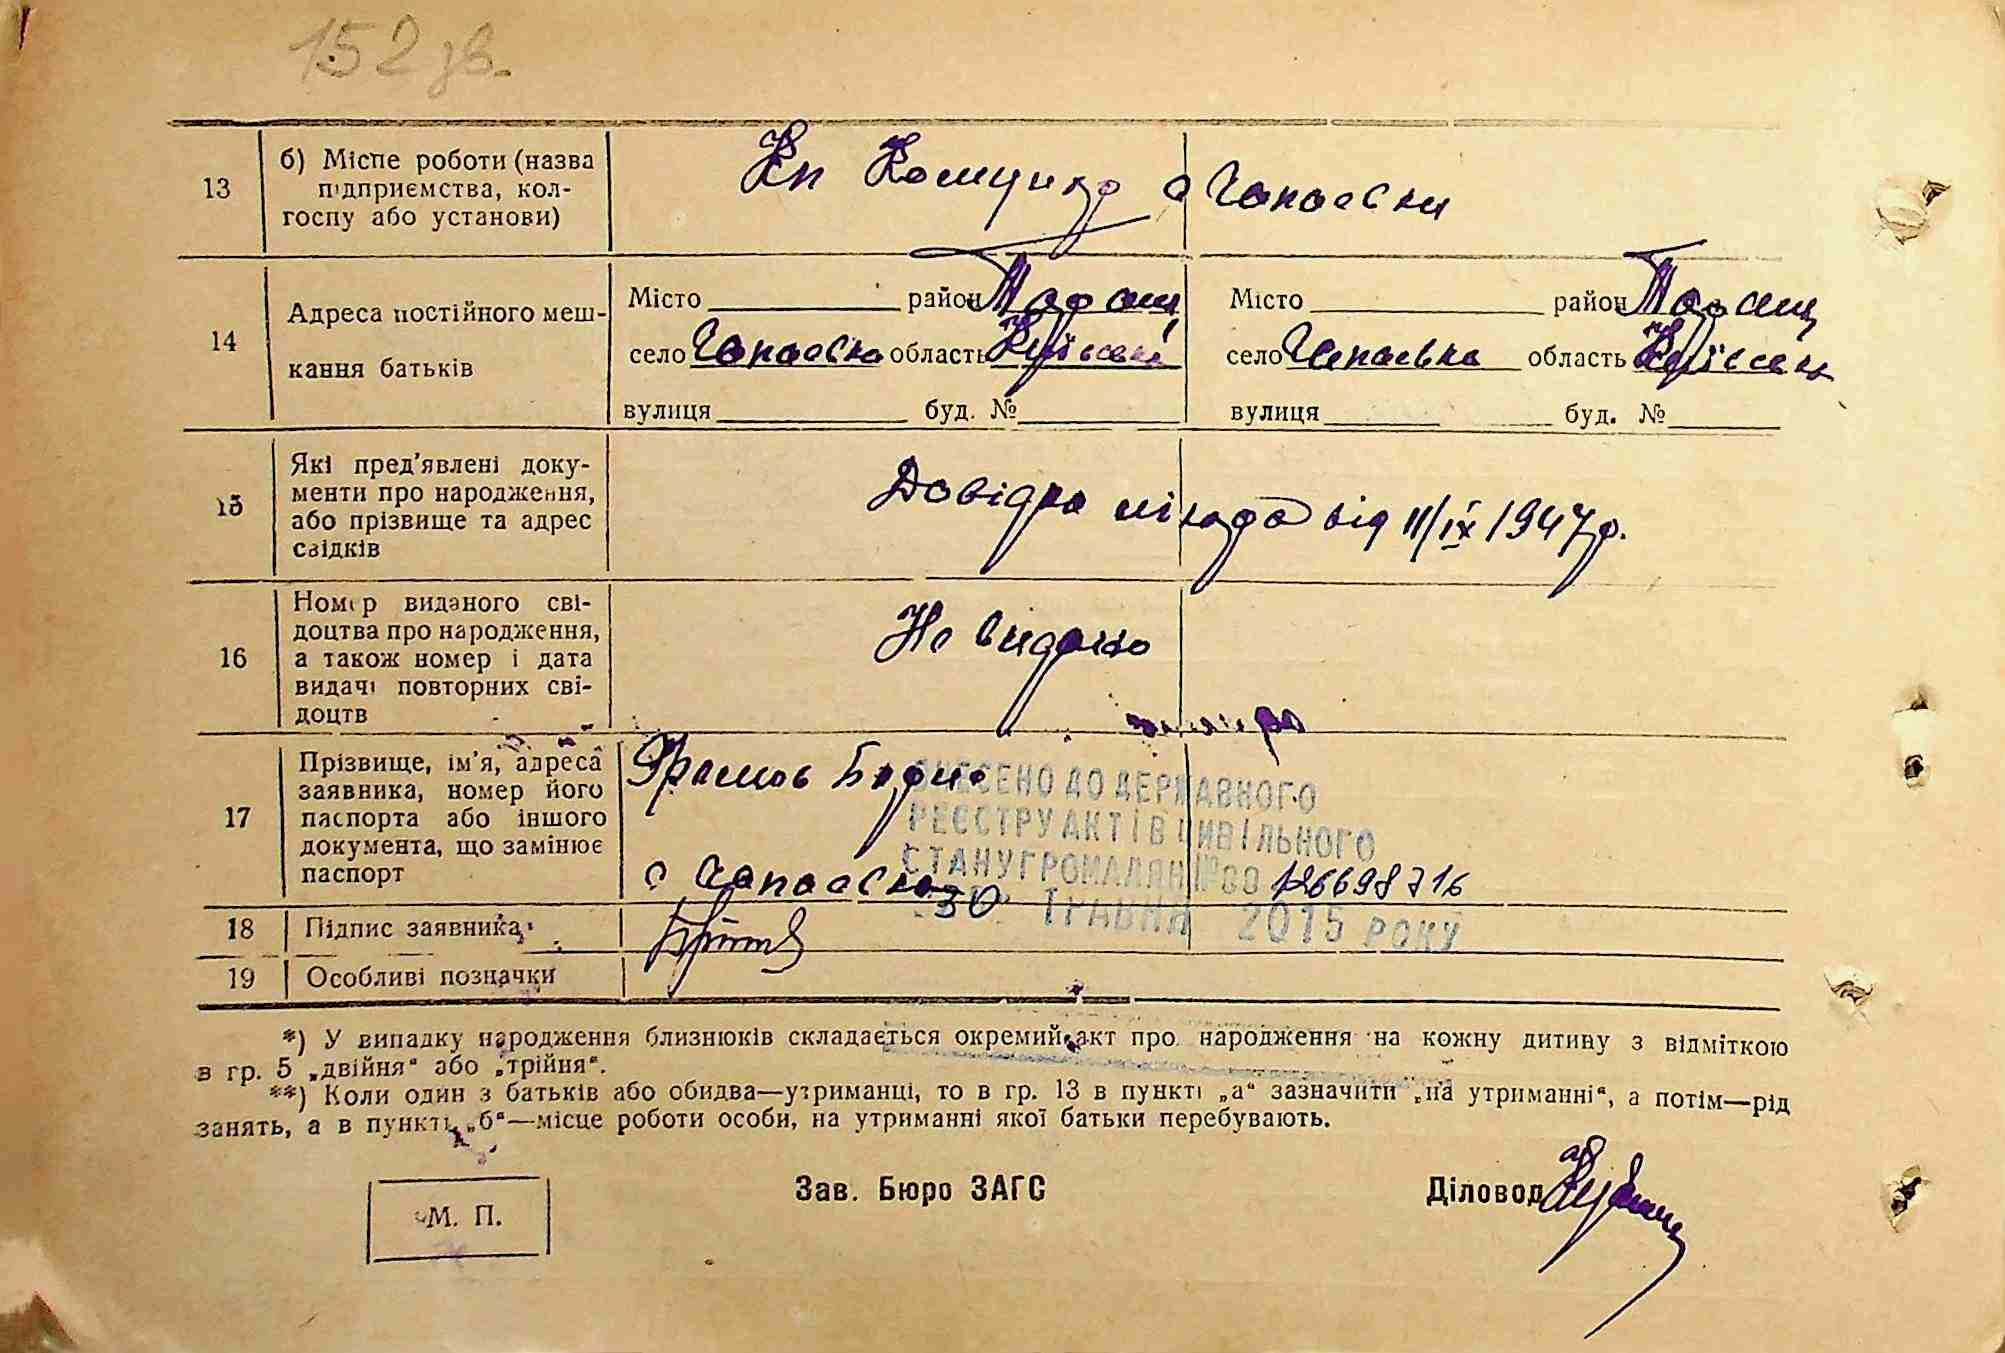 152 зв.
13 б) Місце роботи (назва підприємства, колгоспу або установи)
Кп Комунар с Чапаєвки
14 Адреса постійного мешкання батьків
Місто район Таращ
село Чапаєвка область Київські
вулиця буд. №
Місто район Таращ
село Чапаєвка область Київськ
вулиця буд. №
15 Які пред'явлені документи про народження, або прізвище та адрес свідків
Довідка від 11/IX 1947р.
16 Номер виданого свідоцтва про народження, а також номер і дата видачі повторних свідоцтв
Не видано
17 Прізвище, ім'я, адреса заявника, номер його паспорта або іншого документа, що замінює паспорт
с Чапаєвка
ВНЕСЕНО ДО ДЕРЖАВНОГО
РЕЄСТРУ АКТІВ ЦИВІЛЬНОГО
СТАНУ ГРОМАДЯН №00 126698716
30 ТРАВНЯ 2015 РОКУ
18 Підпис заявника
19 Особливі позначки
*) У випадку народження близнюків складається окремий акт про народження на кожну дитину з відміткою
в гр. 5 „двійня“ або „трійня“.
**) Коли один з батьків або обидва—утриманці, то в гр. 13 в пункті „а“ зазначити „на утриманні“, а потім—рід
занять, а в пункті „б“—місце роботи особи, на утриманні якої батьки перебувають.
М. П.
Зав. Бюро ЗАГС
Діловод